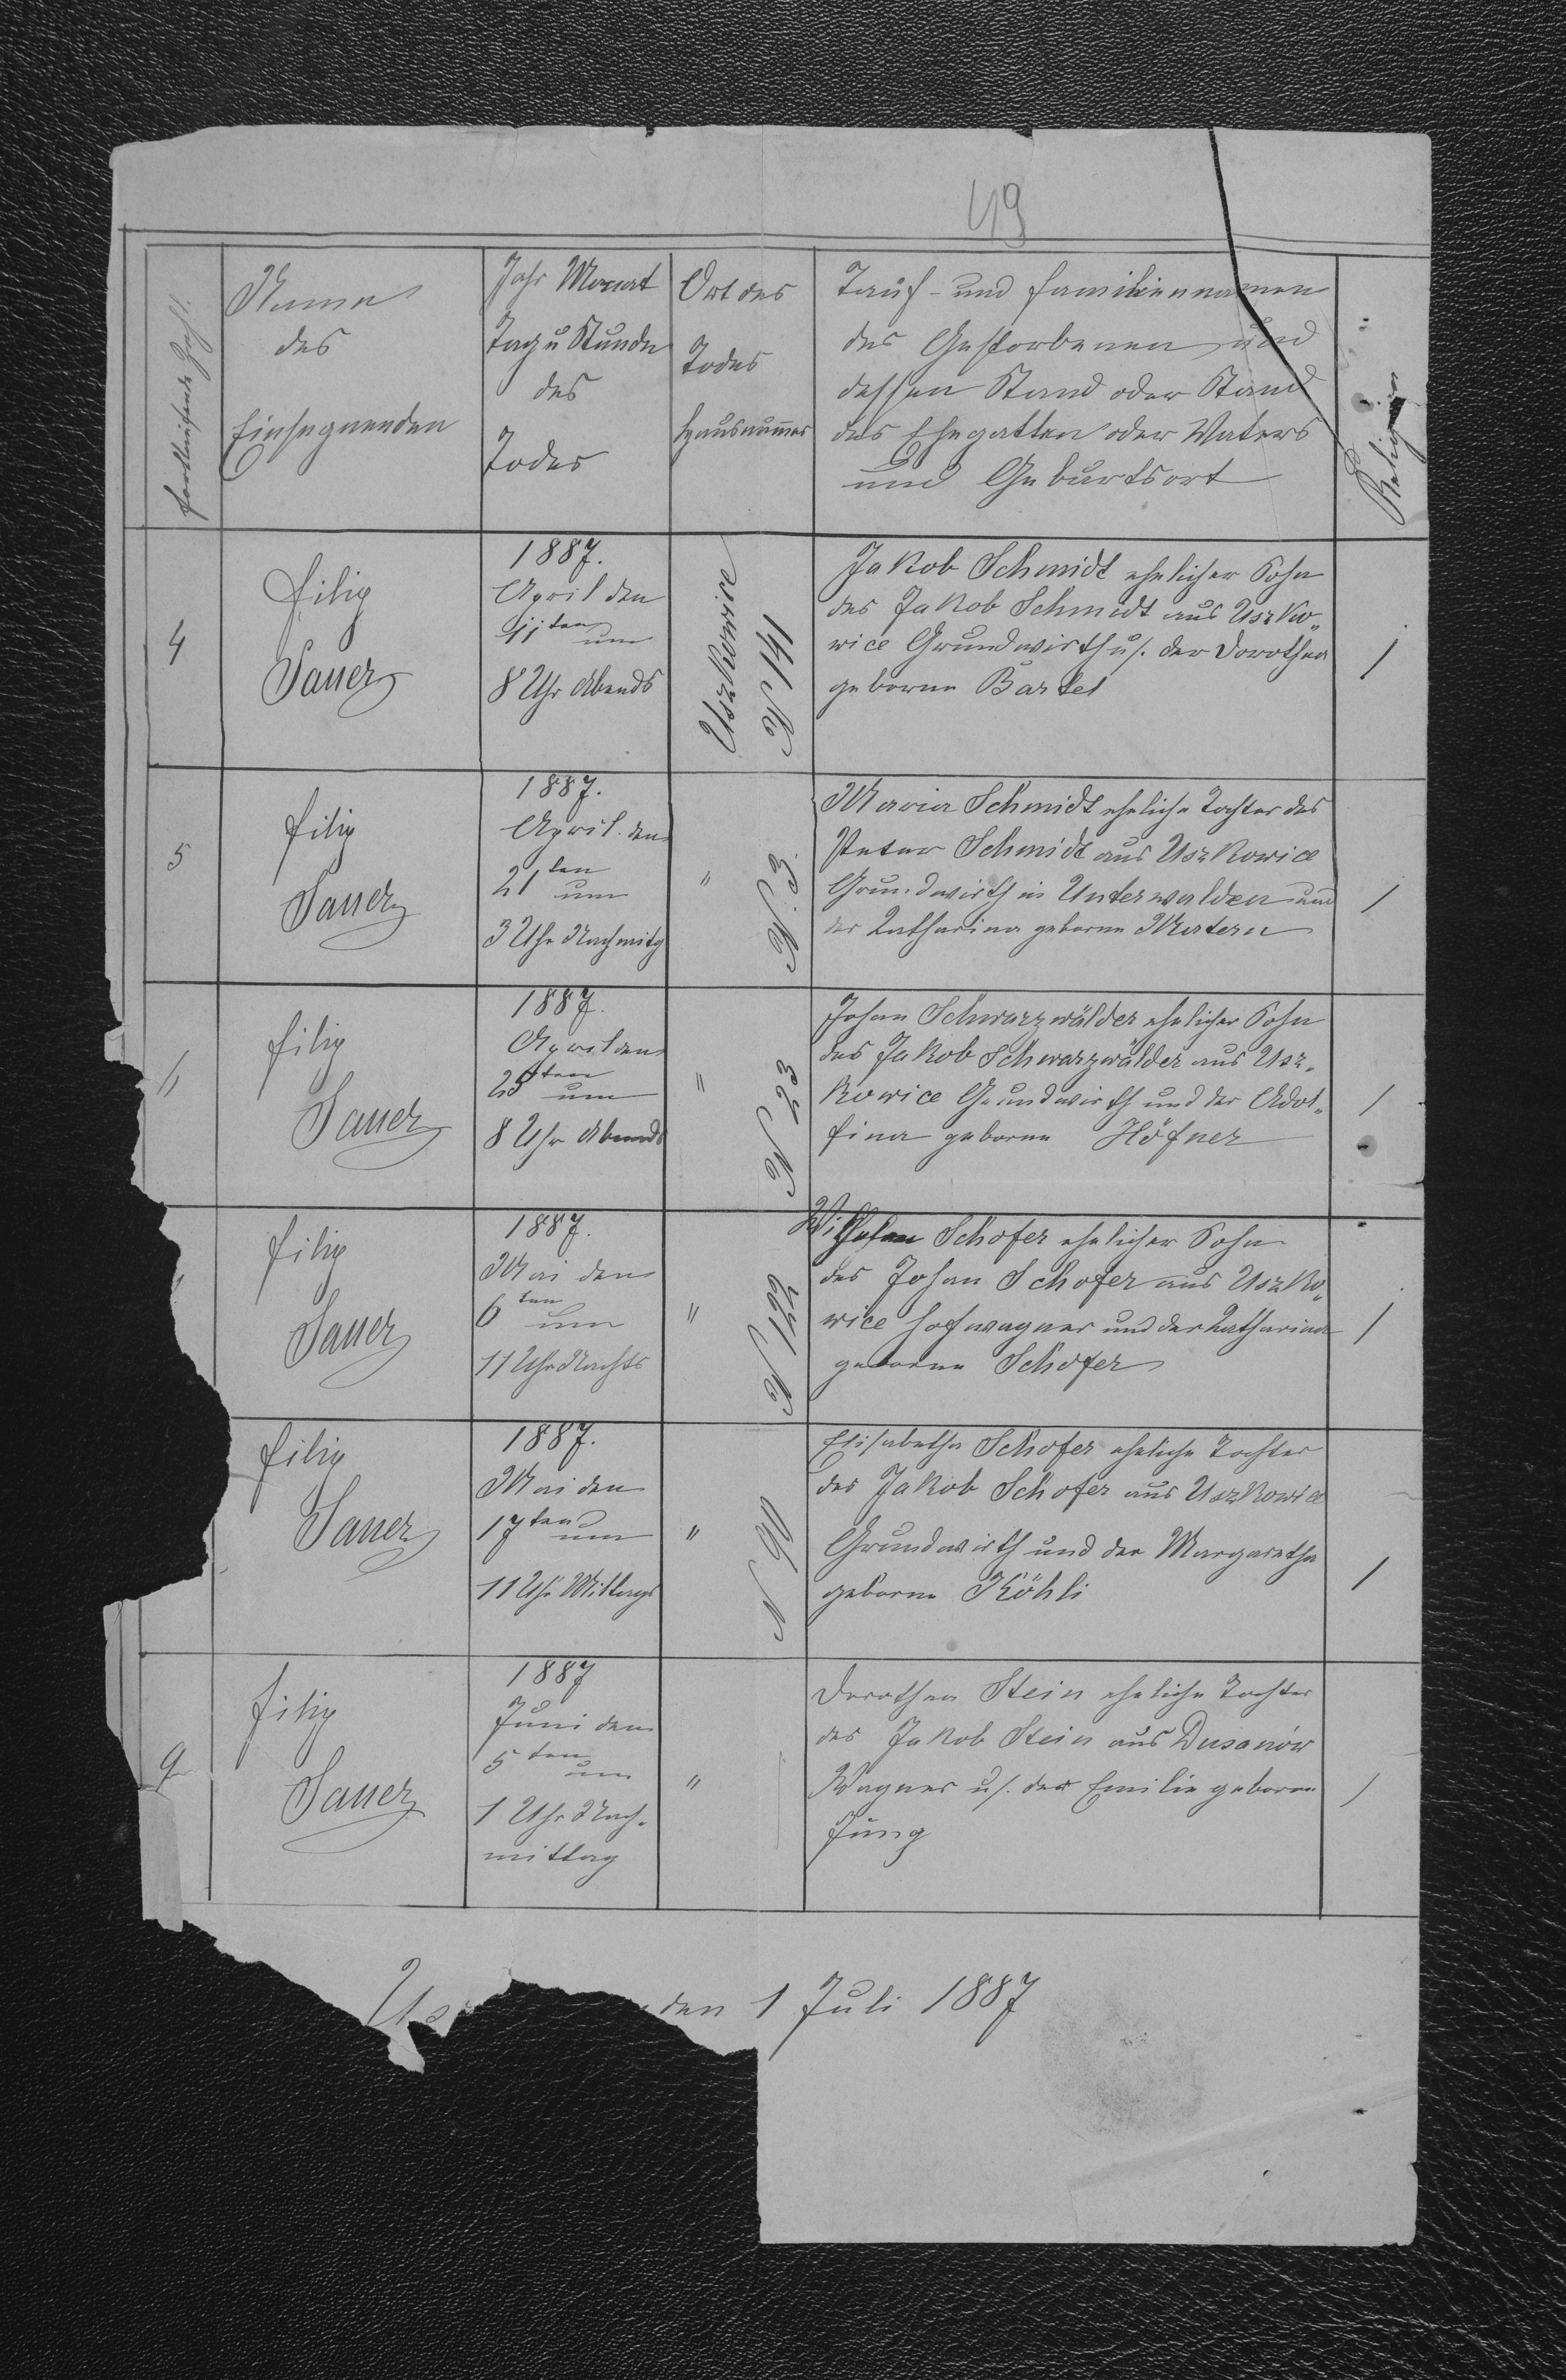 49
fortlaufende Zahl.
Name
des
Einsegnenden
Jahr Monat
Tag u Stunde
des
Todes
Ort des
Todes
Hausnummer
Tauf- und Familiennamen
des Gestorbenen und
dessen Stand oder Stand
des Ehegatten oder Vaters
und Geburtsort
Religion
4
Filip
Sauer
1887.
April den
11ten um
8 Uhr Abends
Uszkowice
N 141
Jakob Schmidt ehelicher Sohn
des Jakob Schmidt aus Uszko„
wice Grundwirth u/. der Dorothea
geborne Bartel
1
5
Filip
Sauer
1887.
April den
21ten um
3 Uhr Nachmitg
"
N. 3.
Maria Schmidt eheliche Tochter des
Peter Schmidt aus Uszkowice
Grundwirth in Unterwalden und
der Katharina geborne Matern
1
6
Filip
Sauer
1887.
April den
25ten um
8 Uhr Abends
"
N 23
Johan Schwarzwälder ehelicher Sohn
des Jakob Schwarzwälder aus Usz„
kowice Grundwirth und der Adol„
fina geborne Höfner
1
Filip
Sauer
1887.
Mai den
6ten um
11 Uhr Nachts
"
N 129
Schofer ehelicher Sohn
des Johan Schofer aus Uszko„
wice Hofwagner und der Katharina
geborne Schofer
1
Filip
Sauer
1887.
Mai den
17ten um
11 Uhr Mittags
"
N 90
Elisabetha Schofer eheliche Tochter
des Jakob Schofer aus Uszkowice
Grundwirth und der Margaretha
geborne Köhli
1
9
Filip
Sauer
1887
Juni den
5ten um
1 Uhr Nach-
mittag
"
Dorothea Stein eheliche Tochter
des Jakob Stein aus Dusanów
Wagner u/. der Emilie geborne
Jung
1
Us den 1 Juli 1887